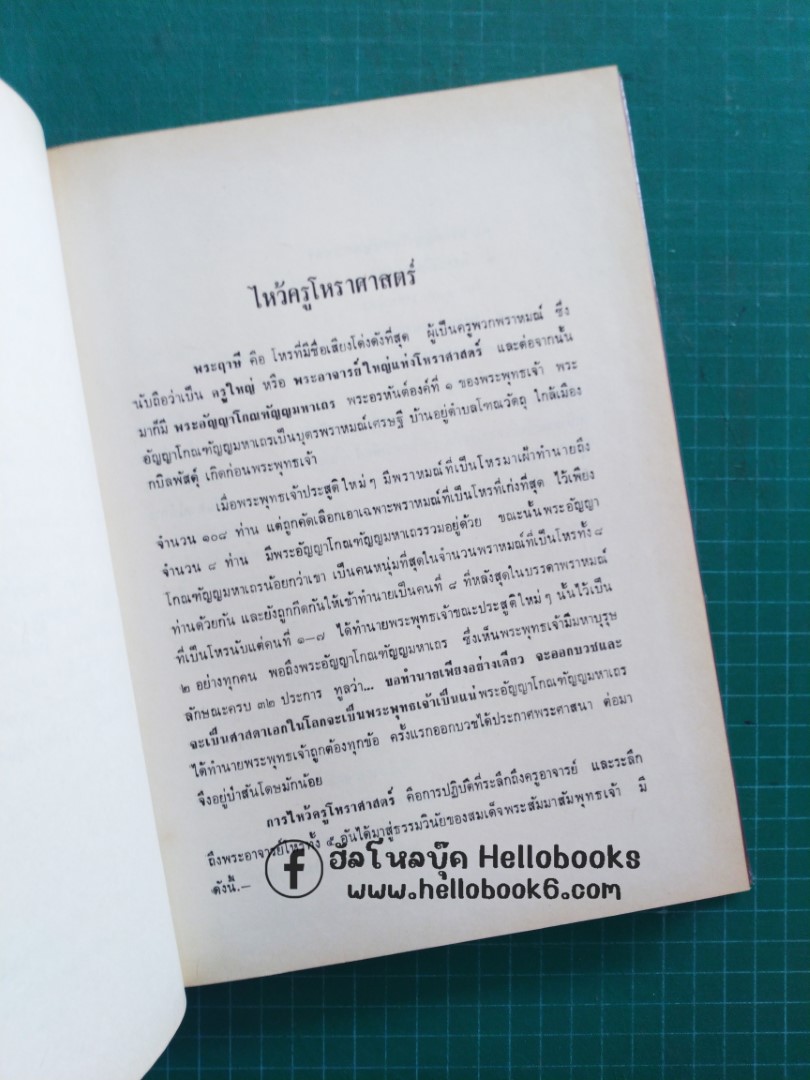 ไหว้ครูโหราศาสตร์
พระฤาษี คือ โหรที่มีชื่อเสียงโด่งดังที่สุด ผู้เป็นครูพวกพราหมณ์ ซึ่ง
นับถือว่าเป็น ครูใหญ่ หรือ พระอาจารย์ใหญ่แห่งโหราศาสตร์ และต่อจากนั้น
มาก็มี พระอัญญาโกณฑัญญมหาเถร พระอรหันต์องค์ที่ ๑ ของพระพุทธเจ้า พระ
อัญญาโกณฑัญญมหาเถรเป็นบุตรพราหมณ์เศรษฐี บ้านอยู่ตำบลโทณวัตถุ ใกล้เมือง
กบิลพัสดุ์ เกิดก่อนพระพุทธเจ้า
เมื่อพระพุทธเจ้าประสูติใหม่ๆ มีพราหมณ์ที่เป็นโหรมาเฝ้าทำนายถึง
จำนวน ๑๐๘ ท่าน แต่ถูกคัดเลือกเอาเฉพาะพราหมณ์ที่เป็นโหรที่เก่งที่สุด ไว้เพียง
จำนวน ๘ ท่าน มีพระอัญญาโกณฑัญญมหาเถรรวมอยู่ด้วย ขณะนั้นพระอัญญา
โกณฑัญญมหาเถรน้อยกว่าเขา เป็นคนหนุ่มที่สุดในจำนวนพราหมณ์ที่เป็นโหรทั้ง ๘
ท่านด้วยกัน และยังถูกกีดกันให้เข้าทำนายเป็นคนที่ ๘ ที่หลังสุดในบรรดาพราหมณ์
ที่เป็นโหรนับแต่คนที่ ๑–๗ ได้ทำนายพระพุทธเจ้าขณะประสูติใหม่ๆ นั้นไว้เป็น
๒ อย่างทุกคน พอถึงพระอัญญาโกณฑัญญมหาเถร ซึ่งเห็นพระพุทธเจ้ามีมหาบุรุษ
ลักษณะครบ ๓๒ ประการ ทูลว่า... ขอทำนายเพียงอย่างเดียว จะออกบวชและ
จะเป็นศาสดาเอกในโลกจะเป็นพระพุทธเจ้าเป็นแน่พระอัญญาโกณฑัญญมหาเถร
ได้ทำนายพระพุทธเจ้าถูกต้องทุกข้อ ครั้งแรกออกบวชได้ประกาศพระศาสนา ต่อมา
จึงอยู่ป่าสันโดษมักน้อย
การไหว้ครูโหราศาสตร์ คือการปฏิบัติที่ระลึกถึงครูอาจารย์ และระลึก
ถึงพระอาจารย์โหรทั้ง ๕ อันได้มาสู่ธรรมวินัยของสมเด็จพระสัมมาสัมพุทธเจ้า มี
ดังนี้.–
ฮัลโหลบุ๊ค Hellobooks
www.hellobook6.com